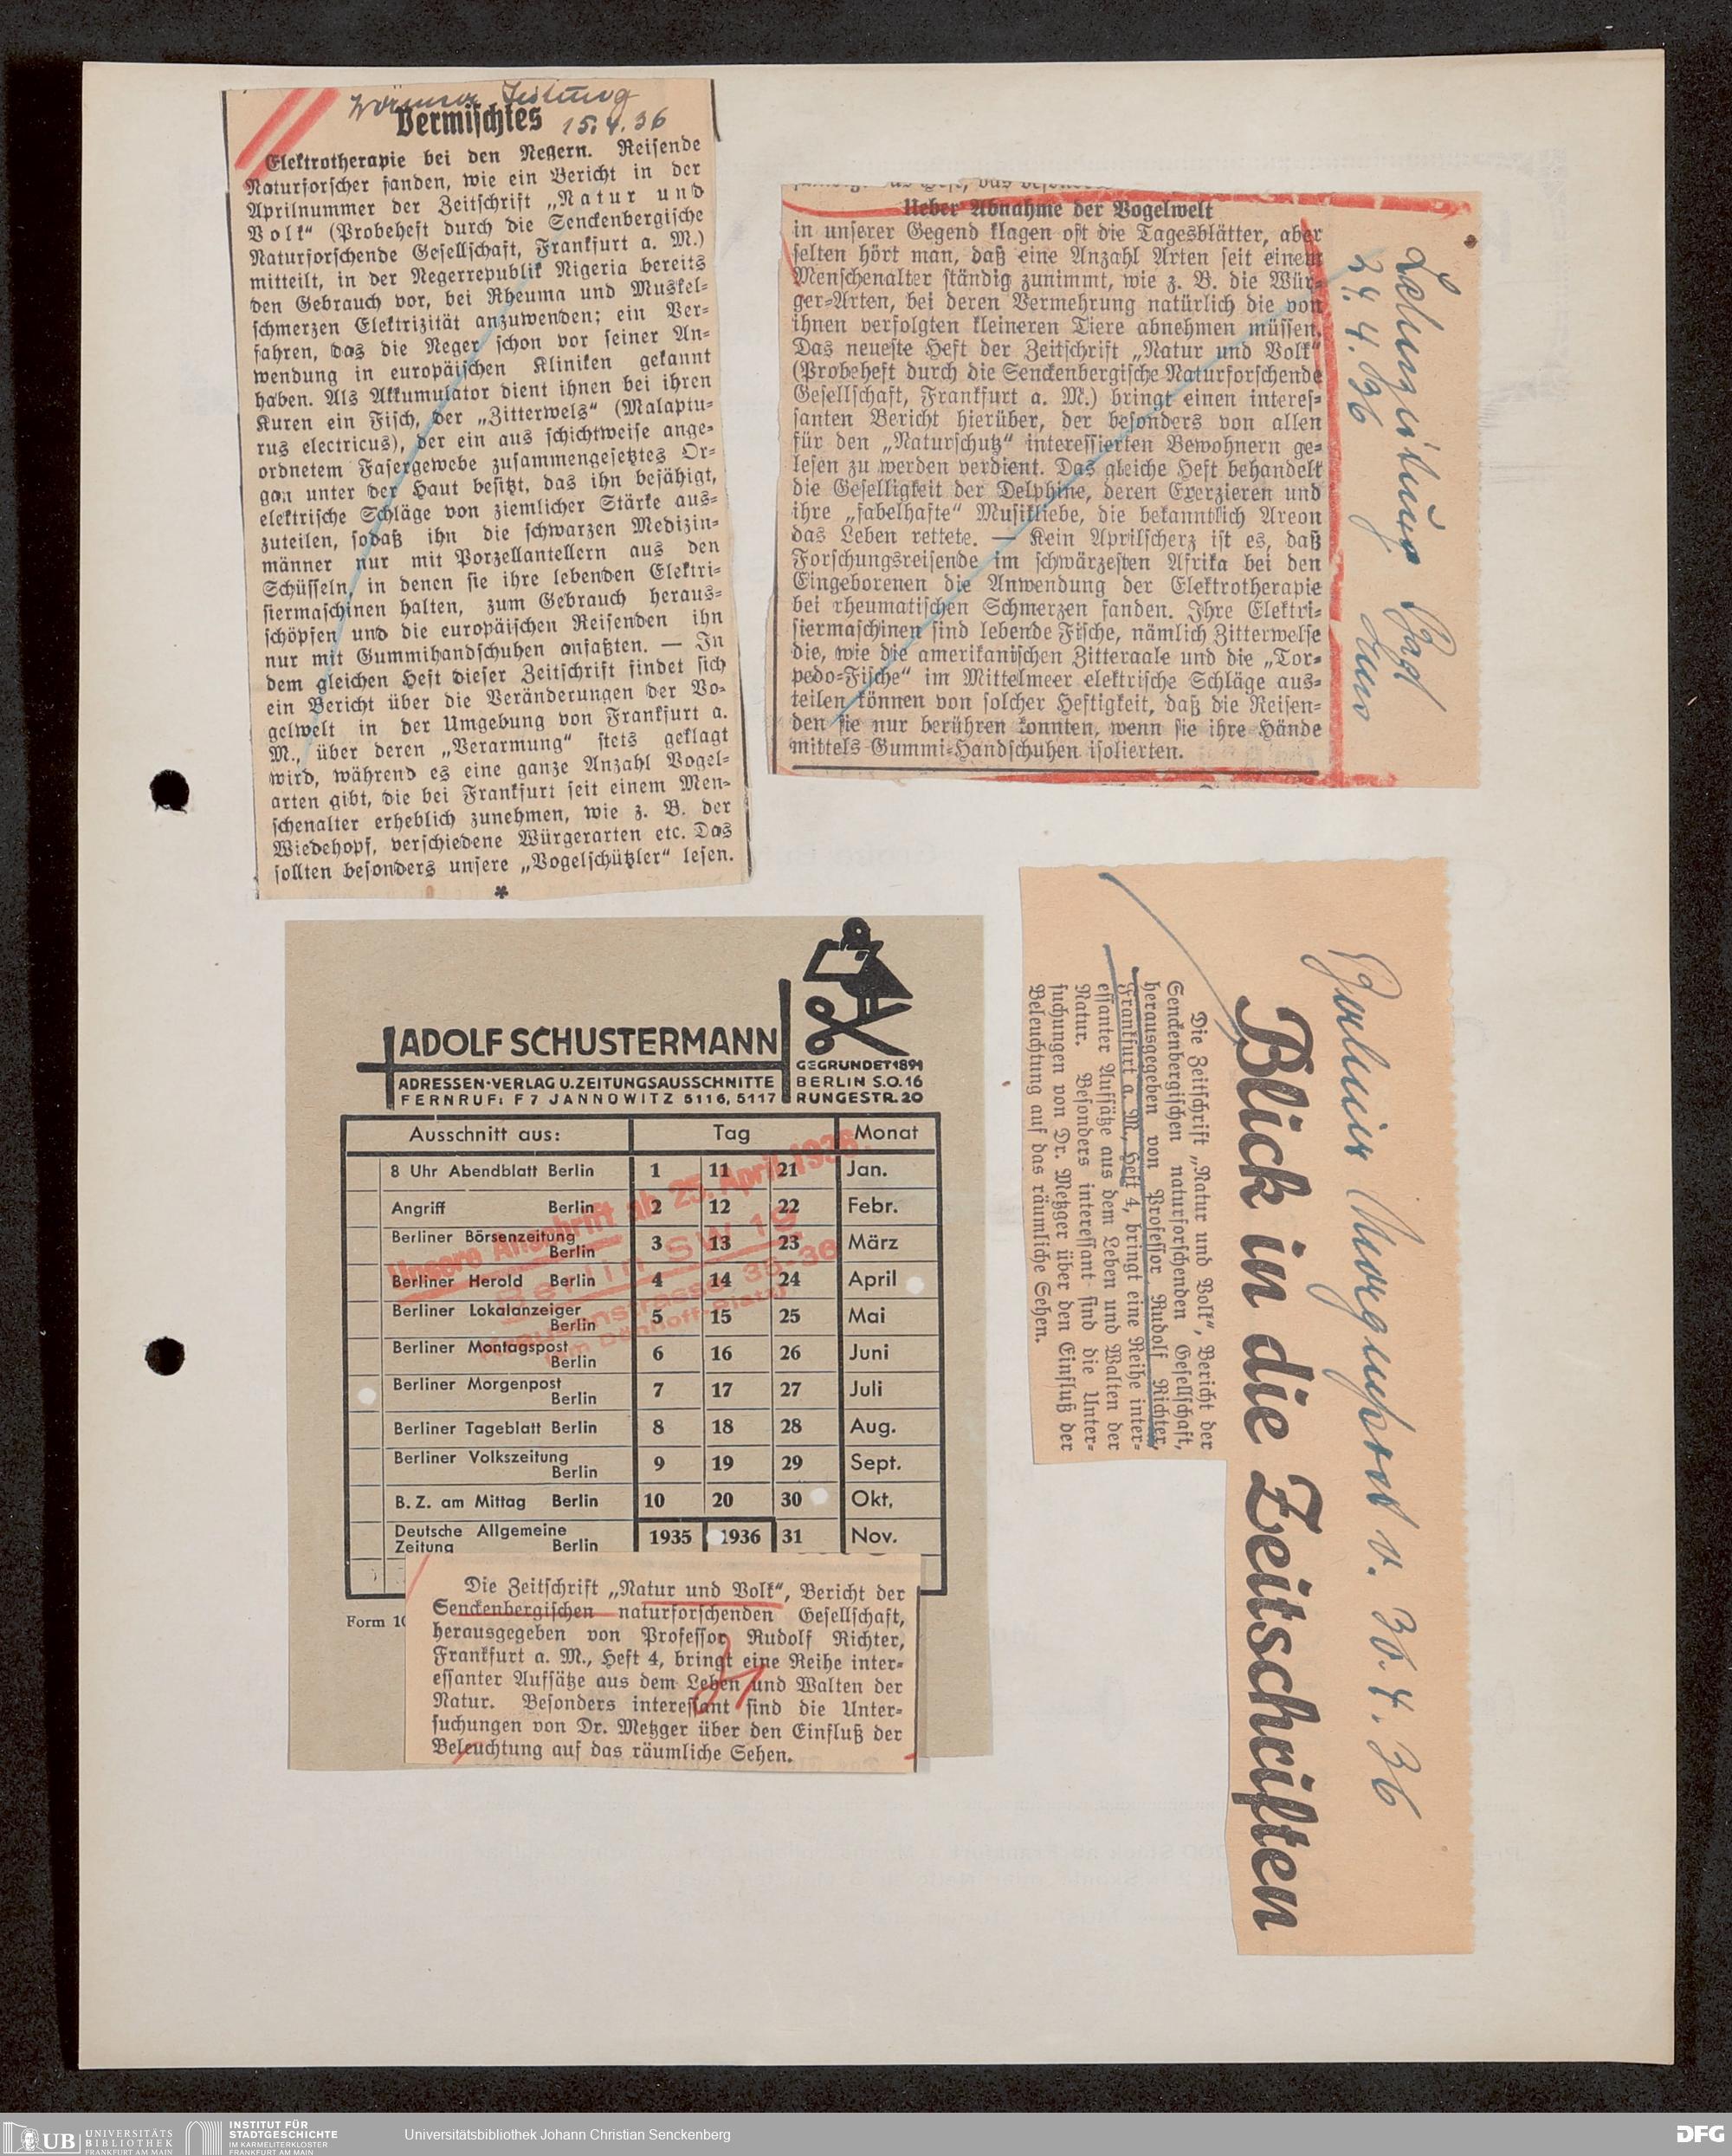 Zeitung
15.4.36
Vermischtes
Elektrotherapie bei den Negern. Reisende
Naturforscher fanden, wie ein Bericht in der
Aprilnummer der Zeitschrift „Natur und
Volk“ (Probeheft durch die Senckenbergische
Naturforschende Gesellschaft, Frankfurt a. M.)
mitteilt, in der Negerrepublik Nigeria bereits
den Gebrauch vor, bei Rheuma und Muskel-
schmerzen Elektrizität anzuwenden; ein Ver-
fahren, das die Neger schon vor seiner An-
wendung in europäischen Kliniken gekannt
haben. Als Akkumulator dient ihnen bei ihren
Kuren ein Fisch, der „Zitterwels“ (Malaptu-
rus electricus), der ein aus schichtweise ange-
ordnetem Fasergewebe zusammengesetztes Or-
gan unter der Haut besitzt, das ihn befähigt,
elektrische Schläge von ziemlicher Stärke aus-
zuteilen, sodaß ihn die schwarzen Medizin-
männer nur mit Porzellantellern aus den
Schüsseln, in denen sie ihre lebenden Elektri-
siermaschinen halten, zum Gebrauch heraus-
schöpfen und die europäischen Reisenden ihn
nur mit Gummihandschuhen anfaßten. — In
dem gleichen Heft dieser Zeitschrift findet sich
ein Bericht über die Veränderungen der Vo-
gelwelt in der Umgebung von Frankfurt a.
M., über deren „Verarmung“ stets geklagt
wird, während es eine ganze Anzahl Vogel-
arten gibt, die bei Frankfurt seit einem Men-
schenalter erheblich zunehmen, wie z. B. der
Wiedehopf, verschiedene Würgerarten etc. Das
sollten besonders unsere „Vogelschützler“ lesen.
*
Ueber Abnahme der Vogelwelt
in unserer Gegend klagen oft die Tagesblätter, aber
selten hört man, daß eine Anzahl Arten seit einem
Menschenalter ständig zunimmt, wie z. B. die Wür-
ger-Arten, bei deren Vermehrung natürlich die von
ihnen verfolgten kleineren Tiere abnehmen müssen.
Das neueste Heft der Zeitschrift „Natur und Volk“
(Probeheft durch die Senckenbergische Naturforschende
Gesellschaft, Frankfurt a. M.) bringt einen interes-
santen Bericht hierüber, der besonders von allen
für den „Naturschutz“ interessierten Bewohnern ge-
lesen zu werden verdient. Das gleiche Heft behandelt
die Geselligkeit der Delphine, deren Exerzieren und
ihre „fabelhafte“ Musikliebe, die bekanntlich Areon
das Leben rettete. — Kein Aprilscherz ist es, daß
Forschungsreisende im schwärzesten Afrika bei den
Eingeborenen die Anwendung der Elektrotherapie
bei rheumatischen Schmerzen fanden. Ihre Elektri-
siermaschinen sind lebende Fische, nämlich Zitterwelse
die, wie die amerikanischen Zitteraale und die „Tor-
pedo-Fische“ im Mittelmeer elektrische Schläge aus-
teilen können von solcher Heftigkeit, daß die Reisen-
den sie nur berühren konnten, wenn sie ihre Hände
mittels Gummi-Handschuhen isolierten.
24.4.36
ADOLF SCHUSTERMANN
ADRESSEN-VERLAG U. ZEITUNGSAUSSCHNITTE
FERNRUF: F7 JANNOWITZ 5116, 5117
GEGRÜNDET 1891
BERLIN S.O.16
RUNGESTR. 20
Ausschnitt aus: Tag Monat
8 Uhr Abendblatt Berlin 1 11 21 Jan.
Angriff Berlin 2 12 22 Febr.
Berliner Börsenzeitung Berlin 3 13 23 März
Berliner Herold Berlin 4 14 24 April
Berliner Lokalanzeiger Berlin 5 15 25 Mai
Berliner Montagspost Berlin 6 16 26 Juni
Berliner Morgenpost Berlin 7 17 27 Juli
Berliner Tageblatt Berlin 8 18 28 Aug.
Berliner Volkszeitung Berlin 9 19 29 Sept.
B. Z. am Mittag Berlin 10 20 30 Okt,
Deutsche Allgemeine Zeitung Berlin 1935 1936 31 Nov.
Unsere Anschrift ab 25. April 1936
Berlin SW 19
Form 10
Die Zeitschrift „Natur und Volk“, Bericht der
Senckenbergischen naturforschenden Gesellschaft,
herausgegeben von Professor Rudolf Richter,
Frankfurt a. M., Heft 4, bringt eine Reihe inter-
essanter Aufsätze aus dem Leben und Walten der
Natur. Besonders interessant sind die Unter-
suchungen von Dr. Metzger über den Einfluß der
Beleuchtung auf das räumliche Sehen.
Berliner Morgenpost v. 30.4.36
Blick in die Zeitschriften
Die Zeitschrift „Natur und Volk“, Bericht der
Senckenbergischen naturforschenden Gesellschaft,
herausgegeben von Professor Rudolf Richter,
Frankfurt a. M., Heft 4, bringt eine Reihe inter-
essanter Aufsätze aus dem Leben und Walten der
Natur. Besonders interessant sind die Unter-
suchungen von Dr. Metzger über den Einfluß der
Beleuchtung auf das räumliche Sehen.
UB UNIVERSITÄTS
BIBLIOTHEK
FRANKFURT AM MAIN
INSTITUT FÜR
STADTGESCHICHTE
IM KARMELITERKLOSTER
FRANKFURT AM MAIN
Universitätsbibliothek Johann Christian Senckenberg
DFG